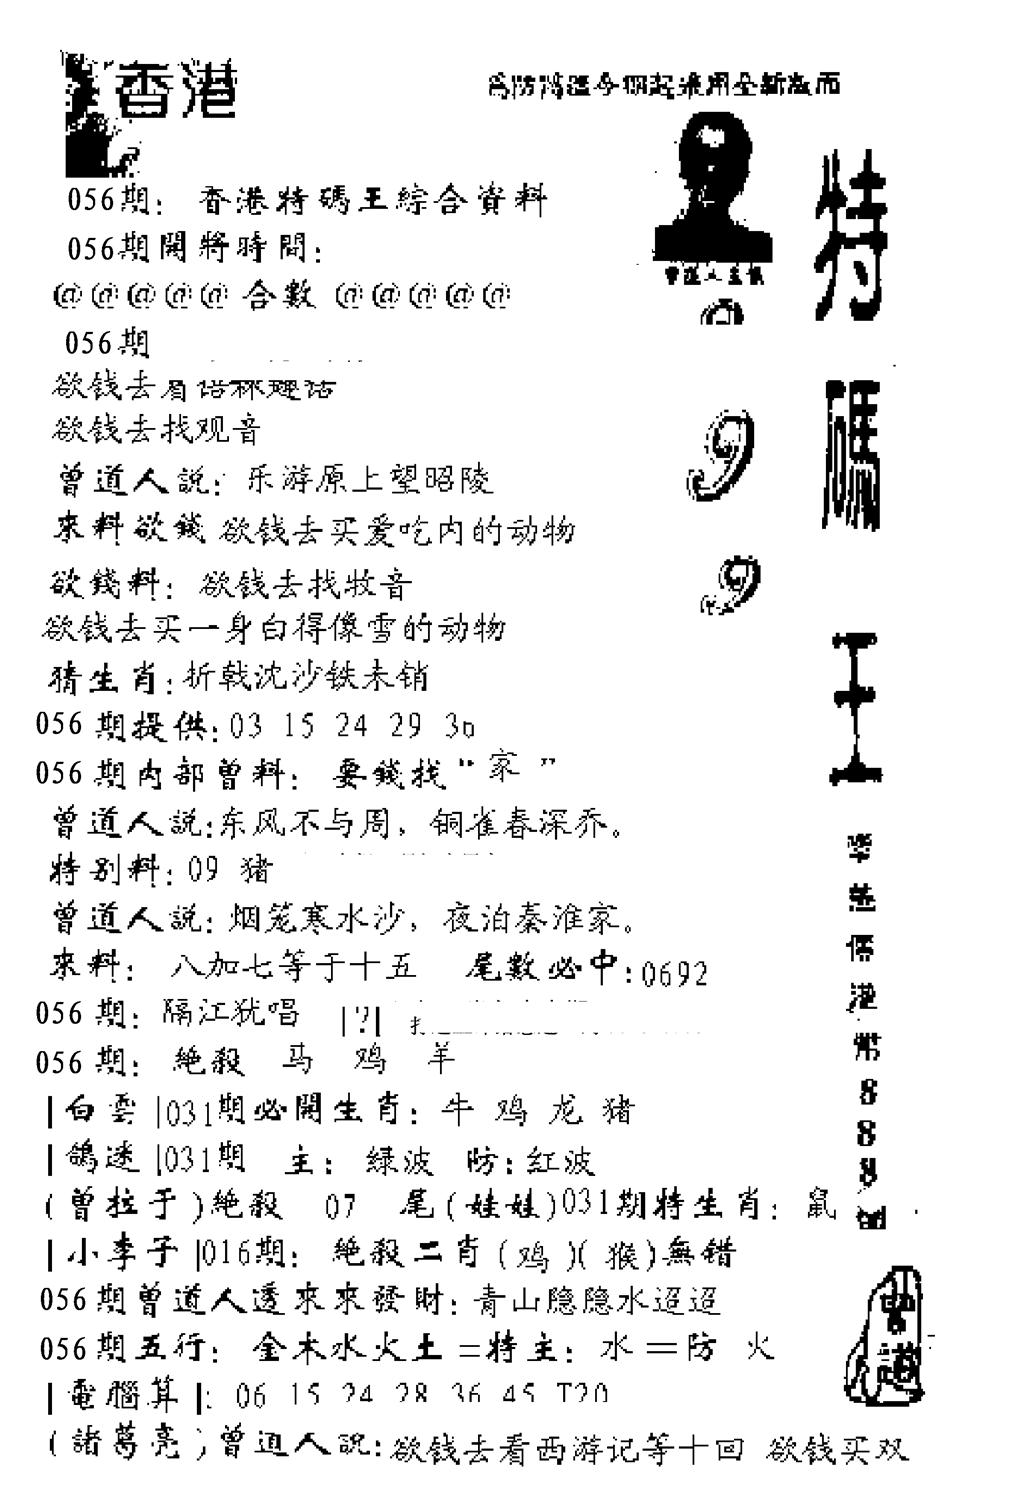 香港
特碼王
056期: 香港特碼王綜合資料
056期開將時間:
@@@@@ 合數 @@@@@
056期
欲钱去
欲钱去找观音
曾道人説: 乐游原上望昭陵
來料欲錢 欲钱去买爱吃内的动物
欲錢料: 欲钱去找牧音
欲钱去买一身白得像雪的动物
猜生肖:折戟沈沙铁未销
056期提供:03 15 24 29 3
056期内部曾料: 要錢找“家”
曾道人説:东风不与周，铜雀春深乔。
特别料:09 猪
曾道人説:烟笼寒水沙，夜泊秦淮家。
來料: 八加七等于十五 尾數必中:0692
056期: 隔江犹唱 |?|
056期: 絶殺 马 鸡 羊
|白雲|031期必開生肖: 牛 鸡 龙 猪
|鴿迷|031期 主: 绿波 防:红波
(曾拉于)絶殺 07 尾(娃娃)031期特生肖: 鼠
|小李子|016期: 絶殺二肖(鸡)(猴)無错
056期曾道人透來來發財:青山隐隐水迢迢
056期五行: 金木水火土=特主: 水=防 火
|電腦算|: 06 15 24 28 36 45 T20
(諸葛亮)曾道人説:欲钱去看西游记等十回 欲钱买双
888
曾道